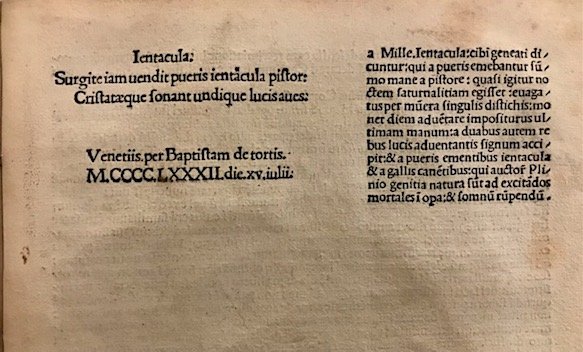 Ientacula:
Surgite iam uendit pueris ientacula pistor:
Cristatæque sonant undique lucis aues:
Venetiis.per Baptistam de tortis.
M.CCCC.LXXXII.die.xv.iulii:
a Mille.Ientacula:cibi geneati di/
cuntur:qui a pueris emebantur sū/
mo mane a pistore: quasi igitur no
ctem saturnalitiam egisset :euaga/
tus per mūera singulis distichis:mo
ner diem aduētare impositurus ul
timam manum:a duabus autem re
bus lucis aduentantis signum acci
pit:& a pueris ementibus ientacula
& a gallis canētibus:qui auctoř Pli
nio genitia natura sūt ad excitādos
mortales ī opa:& somnū rūpendū.